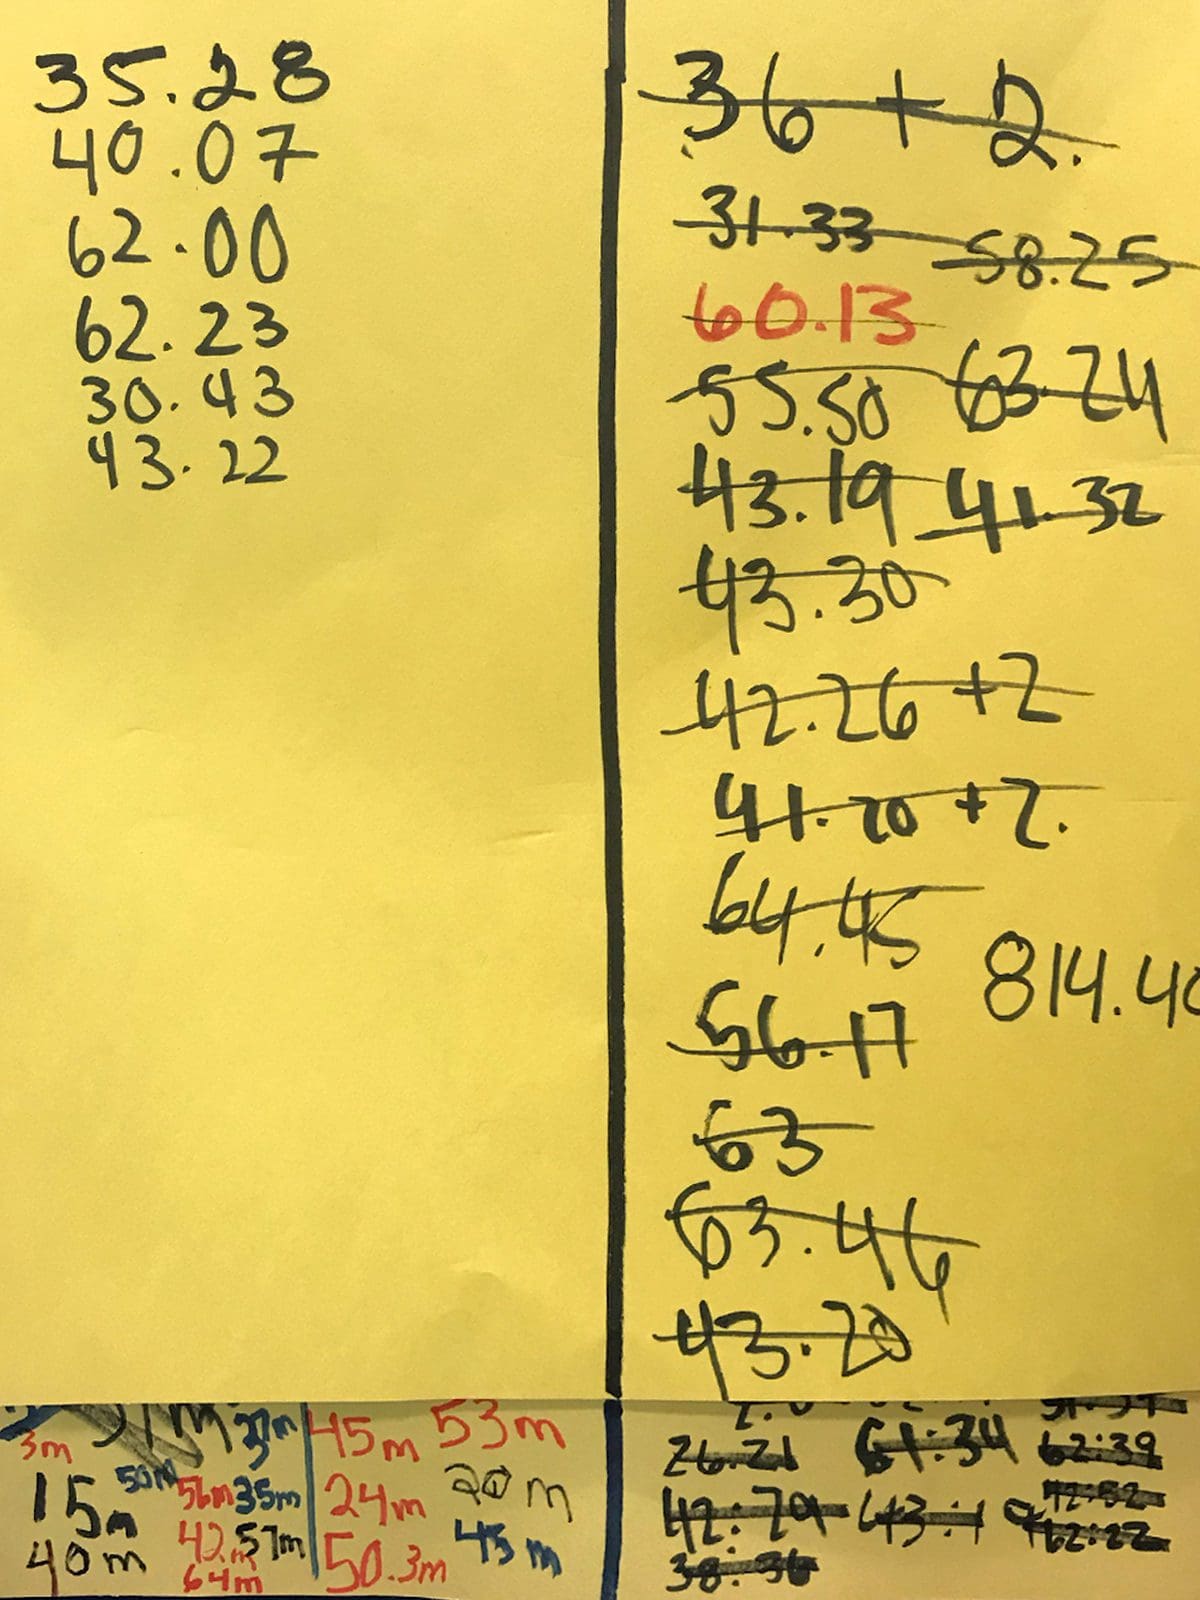 35.28
40.07
62.00
62.23
30.43
43.22
36 + 2.
31.33 58.25
60.13
55.50 63.24
43.19 41.32
43.30
42.26 +2
41.20 +2.
64.45
814.40
56.17
63
63.46
43.20
3m 37m
15m 50m 56m 35m
40m 42.m 57m
64m
45m 53m
24m 20m
50.3m 45m
26.21 61:34 62:39
42:29 43:19 42:52
62:22
38:36